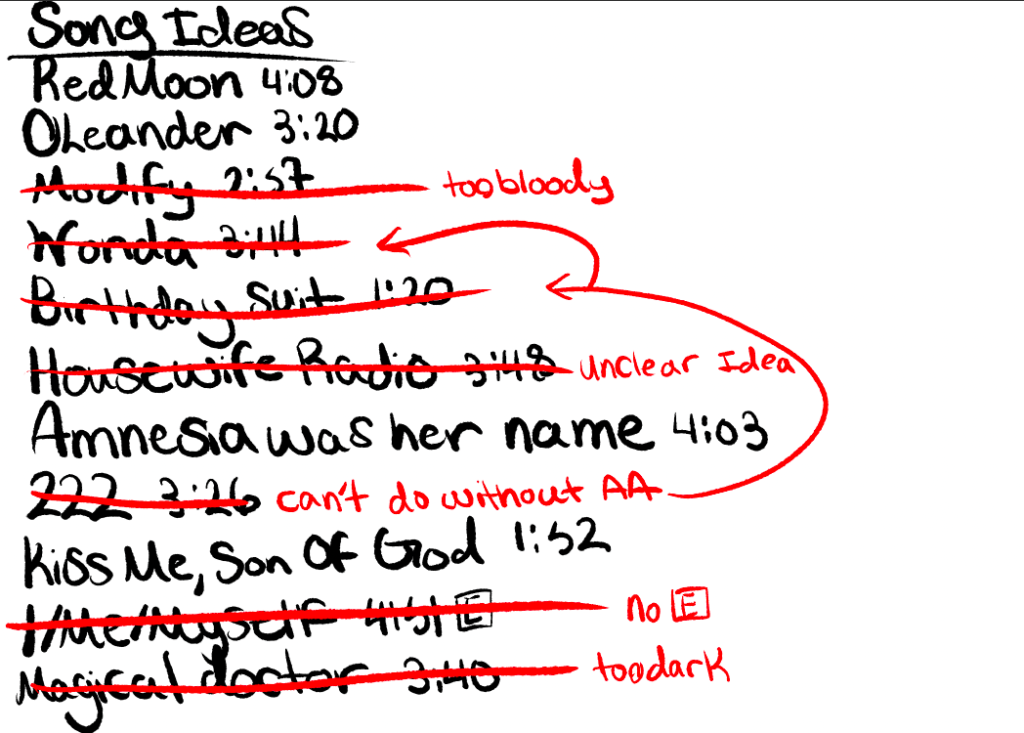 Song Ideas
Red Moon 4:08
OLeander 3:20
Modify 2:57 too bloody
Wonda 3:44
Birthday Suit 1:20
Housewife Radio 3:48 unclear Idea
Amnesia was her name 4:03
222 3:26 can't do without AA
Kiss Me, Son Of God 1:52
I/Me/Myself 4:51 E no E
Magical doctor 3:40 too dark